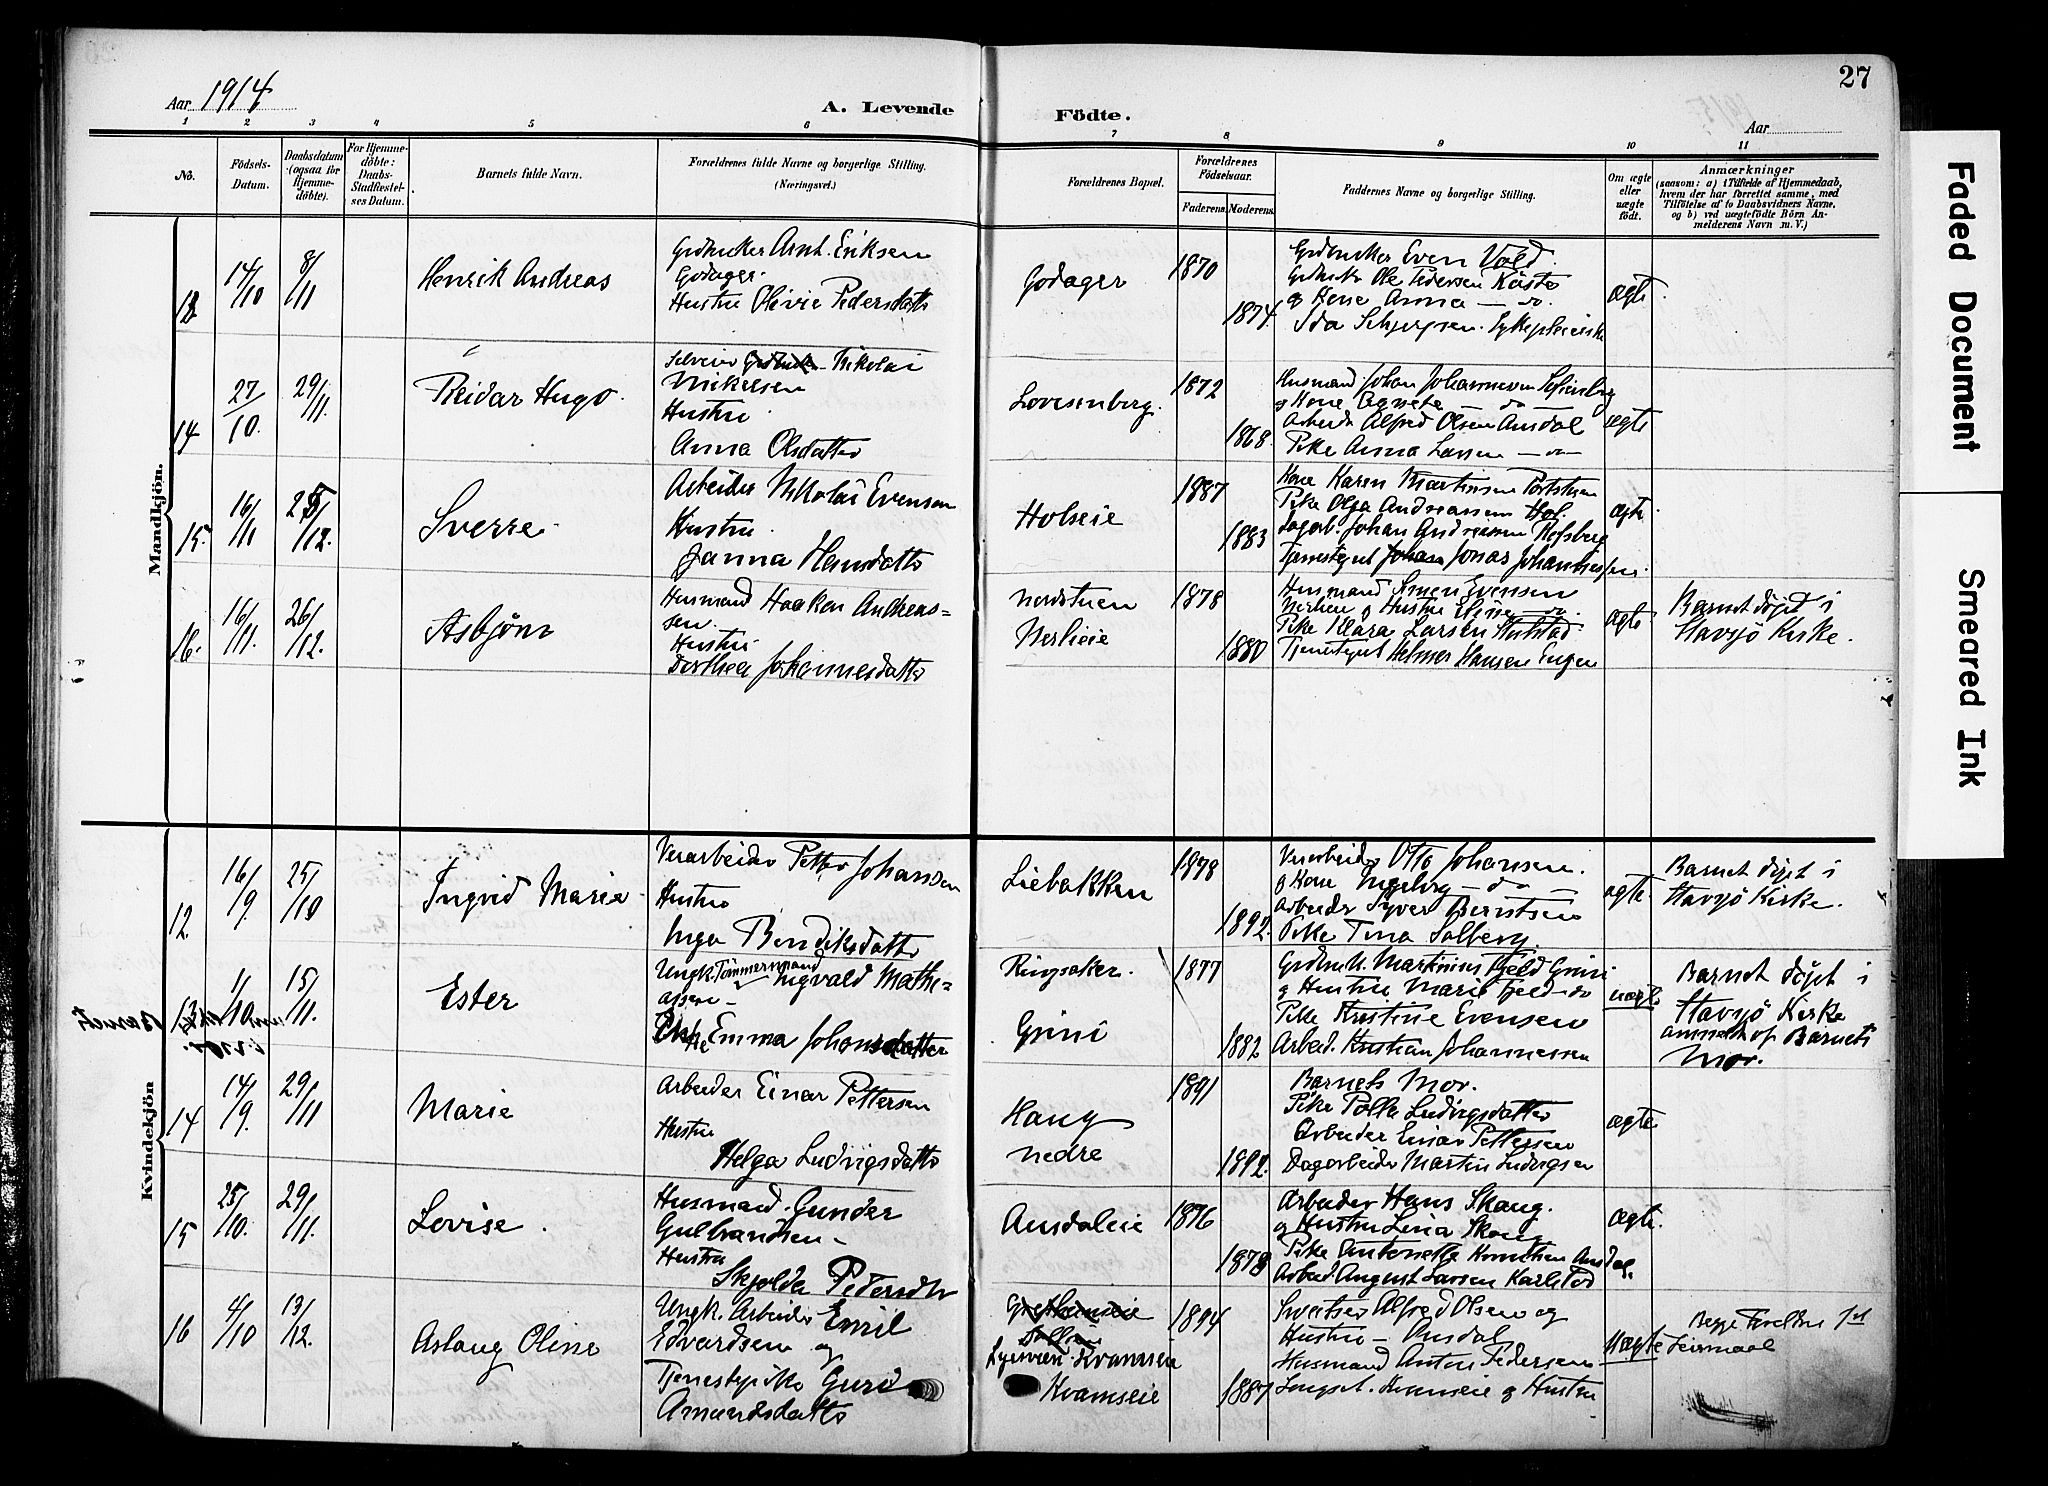 27
Aar 1914
A. Levende
Födte.
Aar
1 2 3 4 5 6 7 8 9 10 11
No.
Födsels-Datum.
Daabsdatum (ogsaa for Hjemmedöbte).
For Hjemmedöbte: Daabs-Stadfæstelses Datum.
Barnets fulde Navn.
Forældrenes fulde Navne og borgerlige Stilling.
(Næringsvei.)
Forældrenes Bopæl.
Forældrenes Födselsaar.
Faderens. Moderens.
Faddernes Navne og borgerlige Stilling.
Om ægte eller uægte födt.
Anmærkninger
(saasom: a) i Tilfælde af Hjemmedaab,
hvem der har forrettet samme, med
Tilföielse af to Daabsvidners Navne,
og b) ved uægtefödte Börn An-
melderens Navn m. V.)
Mandkjön.
14/10 8/11
Henrik Andreas
Grdbruker Arnt Eriksen
Godager
Hustru Olivie Pedersdatter
Godager
1870
1874.
Grdbruker Even Vold
Grdbruker Ole Pedersen Kaste
og Kone Anna — do.
Ida
Sykepleierske
ægte
14
27/10. 29/11.
Reidar Hugo.
Selveier Nikolai
Mikelsen
Hustru
Anna Olsdatter
Lovisenberg.
1872
1868.
Husmand Johan Johannesen
og Kone Agnete do
Arbeider Alfred Olsen Amdal
Pike Anna Larsen — do —
ægte
15.
16/11 /12.
Sverre
Arbeider Nikolai Evensen
Hustru
Janna Hansdatter
Holseie
1887
1883
Kone Karen Martinsen
Pike Olga Andreassen Hol.
Dagarb. Johan Andreassen
Tjenestegut Jonas Johannessen
ægte
16.
16/11. 26/12.
Asbjörn
Husmand Haakon Andreas-
sen.
Hustru
Dorthea Johannesdatter
Nordstuen
Nerlieie
1878
1880
Husmand Simen Evensen
Nerlien og Hustru Eline do
Pike Klara Larsen
Tjenestegut Helmer Hansen Engen
ægte
Barnet döpt i
Stavsjö Kirke.
Kvindekjön
12.
16/9 25/10
Ingrid Marie
Verarbeider Petter Johansen
Hustru
Inga Bendiksdatter
Liebakken
1898
1892.
Verarbeider Otto Johansen.
og Kone Ingeborg — do —
Arbeider Syver Berntsen
Pike Tina Solberg.
ægte.
Barnet döpt i
Stavsjö Kirke.
13
1/10 15/11.
Ester
Ungk. Tömmermand Ingvald Mathi-
assen —
Pike Emma Johansdatter
Ringsaker.
Grini
1877
1882
Grdbruk. Martinius Fjeld Grini
og Hustru Marie Fjeld do
Pike Kristine Evensen
Arbeid. Kristian Johannessen
uægte
Barnet döpt i
Stavsjö Kirke
anmeldt af Barnets
Mor.
14
14/9. 29/11
Marie
Arbeider Einar Pettersen
Hustru
Helga Ludvigsdatter
Haug
nedre
1891
1892.
Barnets Mor.
Pike Polla Ludvigsdatter
Arbeider Einar Pettersen
Dagarbeider Martin Ludvigsen
ægte
15
25/10. 29/11.
Lovise.
Husmand. Gunder
Gulbrandsen —
Hustru
Skjolda Pedersdtr
Amdaleie
1876
1878
Arbeider Hans Skaug.
og Hustru Lina Skaug
Pike Antonette
Arbeid. August Larsen Karlstad
ægte.
16
4/10 13/12.
Aslaug Oline
Ungk. Arbeider Emil
Edvardsen og
Tjenestepike Guri
Amundsdatter
Kvamseie
Kvamseie
1894
1887
Sveitser Alfred Olsen og
Hustru — Amdal
Husmand Anton Pedersen
Kvamseie og Hustru
Uægte
Begge Forældre 1st
Leiermaal
Faded Document
Smeared Ink